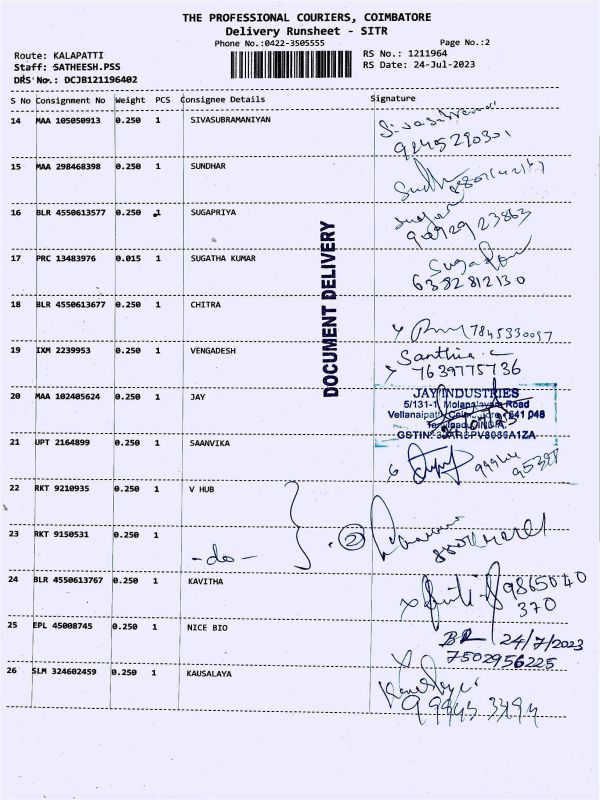 THE PROFESSIONAL COURIERS, COIMBATORE
Delivery Runsheet - SITR
Phone No.:0422-3505555
Page No.:2
Route: KALAPATTI
RS No.: 1211964
Staff: SATHEESH.PSS
RS Date: 24-Jul-2023
DRS No.: DCJB121196402
S No Consignment No Weight PCS Consignee Details Signature
14 MAA 105050913 0.250 1 SIVASUBRAMANIYAN
9245290301
15 MAA 298468398 0.250 1 SUNDHAR
16 BLR 4550613577 0.250 1 SUGAPRIYA
17 PRC 13483976 0.015 1 SUGATHA KUMAR
6382812130
18 BLR 4550613677 0.250 1 CHITRA
7845330097
19 IXM 2239953 0.250 1 VENGADESH Santhia
7639775736
20 MAA 102405624 0.250 1 JAY
JAY INDUSTRIES
5/131-1, Molapalayam Road
641 048
21 UPT 2164899 0.250 1 SAANVIKA
DOCUMENT DELIVERY
22 RKT 9210935 0.250 1 V HUB
23 RKT 9150531 0.250 1 -do- 2
24 BLR 4550613767 0.250 1 KAVITHA 9865040
370
25 EPL 45008745 0.250 1 NICE BIO 24/7/2023
7502956225
26 SLM 324602459 0.250 1 KAUSALAYA